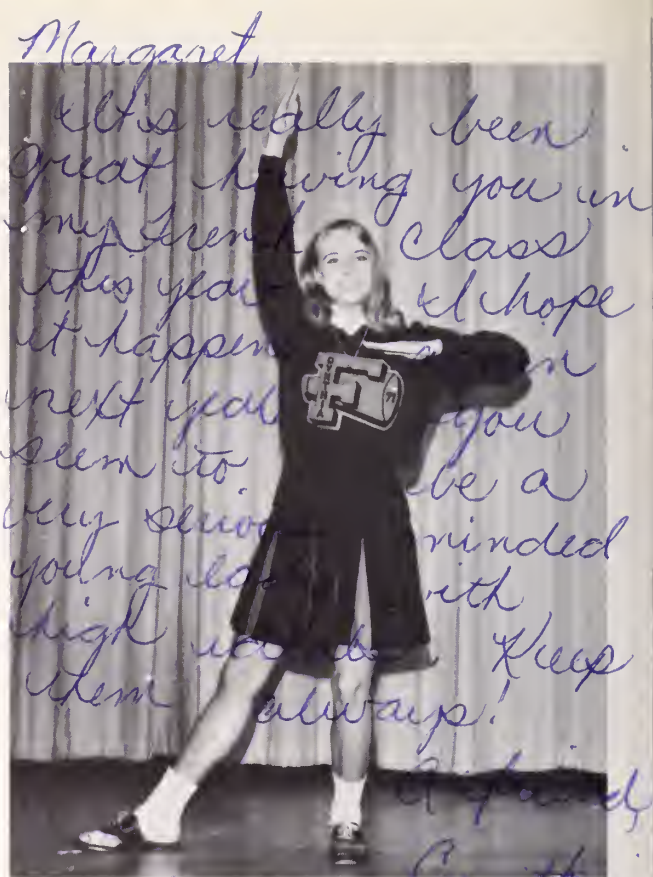 Margaret,
It's really been
great having you in
my French class
this year I hope
it happen
next year you
seem to be a
very serious minded
young with
high Keep
them always!
A friend,